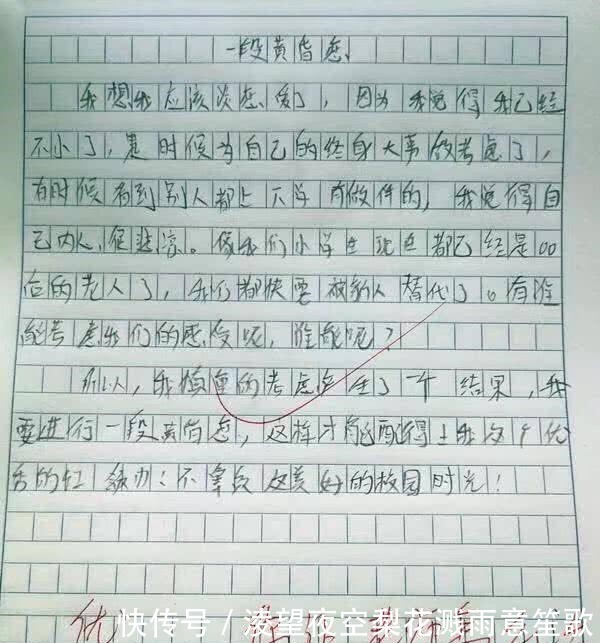 一段黄昏恋
我想我应该谈恋爱了，因为我觉得我已经
不小了，是时候为自己的终身大事做考虑了，
有时候看到别人都上下学有做伴的，我觉得自
己内人很悲凉。像我们小学生现在都已经是00
后的老人了，我们都快要被别人替代了。有谁
能考虑我们的感受呢，谁能呢？
所以，我慎重的考虑产生了一个结果，我
要进行一段黄昏恋，这样才能配得上我这个优
秀的红领巾！不辜负这美好的校园时光！
优
快传号 / 凌望夜空梨花溅雨意笙歌